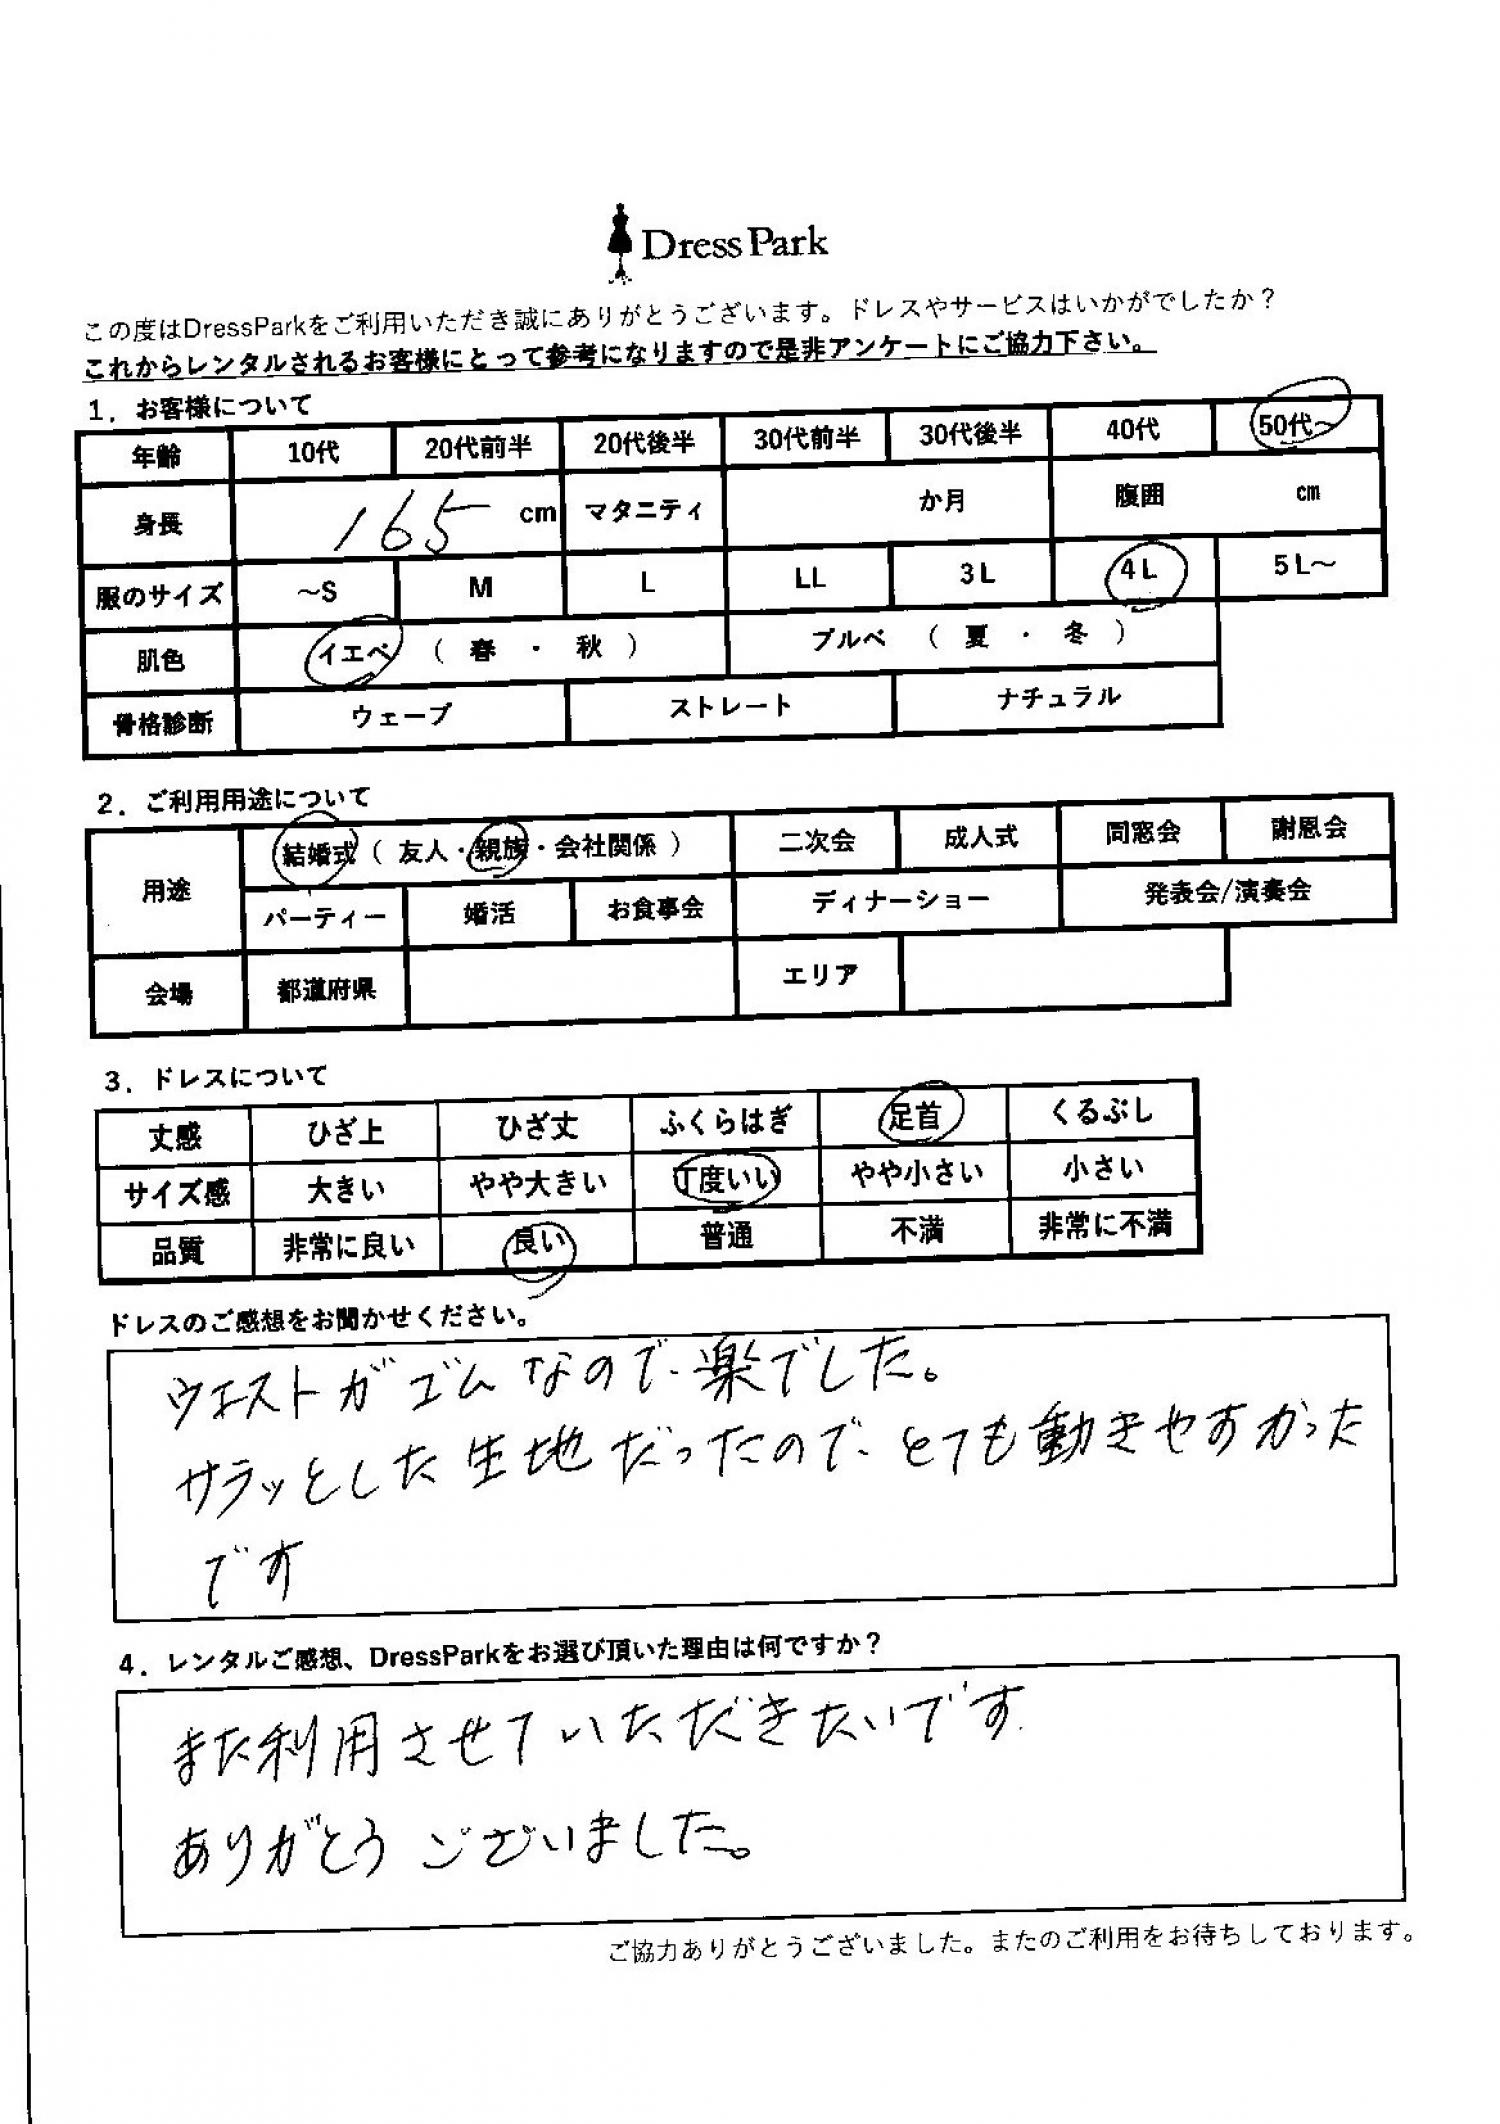 Dress Park
この度はDressParkをご利用いただき誠にありがとうございます。ドレスやサービスはいかがでしたか？
これからレンタルされるお客様にとって参考になりますので是非アンケートにご協力下さい。
1．お客様について
年齢 10代 20代前半 20代後半 30代前半 30代後半 40代 50代～
身長 165 cm マタニティ か月 腹囲 cm
服のサイズ ～S M L LL 3L 4L 5L～
肌色 イエベ （ 春 ・ 秋 ） ブルベ （ 夏 ・ 冬 ）
骨格診断 ウェーブ ストレート ナチュラル
2．ご利用用途について
用途 結婚式（ 友人・親族・会社関係 ） 二次会 成人式 同窓会 謝恩会
パーティー 婚活 お食事会 ディナーショー 発表会/演奏会
会場 都道府県 エリア
3．ドレスについて
丈感 ひざ上 ひざ丈 ふくらはぎ 足首 くるぶし
サイズ感 大きい やや大きい 丁度いい やや小さい 小さい
品質 非常に良い 良い 普通 不満 非常に不満
ドレスのご感想をお聞かせください。
ウエストがゴムなので楽でした。
サラッとした生地だったのでとても動きやすかった
です
4．レンタルご感想、DressParkをお選び頂いた理由は何ですか？
また利用させていただきたいです
ありがとうございました。
ご協力ありがとうございました。またのご利用をお待ちしております。